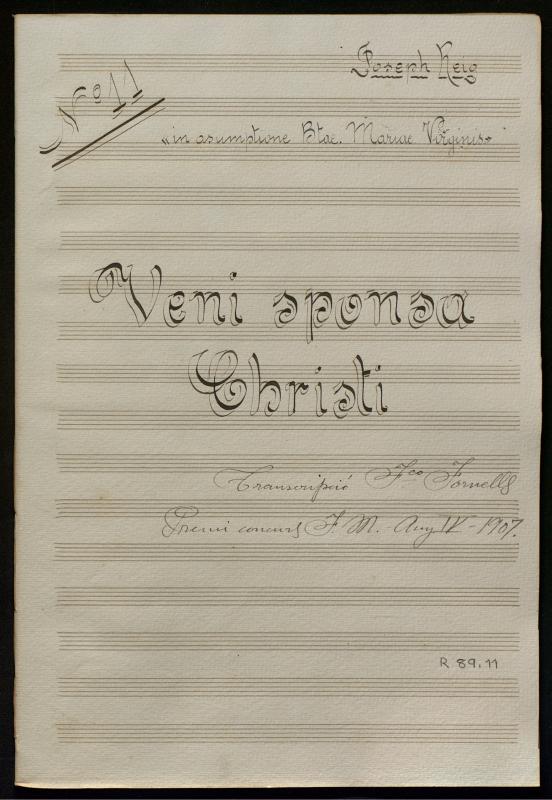 Joseph Reig
Nº 11
«in asumptione Btae. Mariae Virginis»
Veni sponsa
Christi
Transcripció Fco Fornells
Premi concurs F. M. - Any IV - 1907.
R 89.11